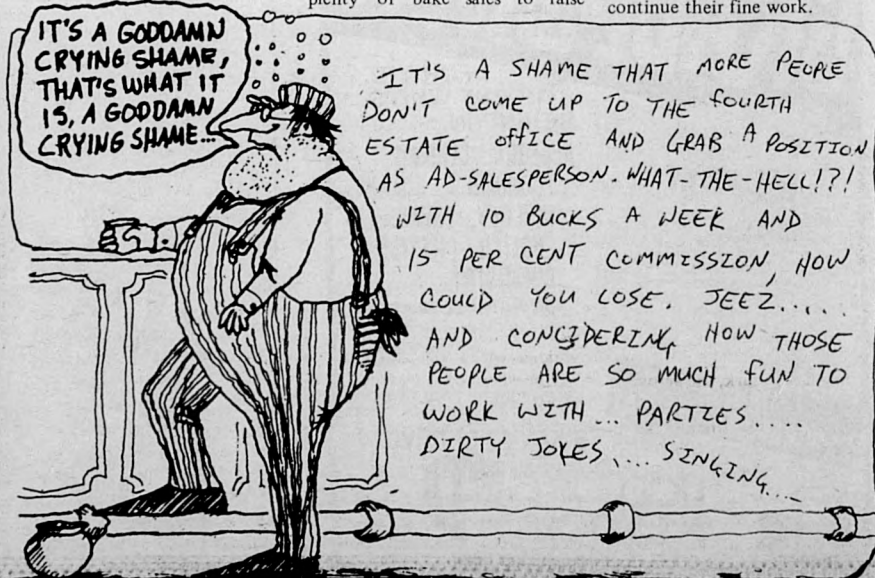 plenty of bake sales to raise
continue their fine work.
IT'S A GODDAMN
CRYING SHAME,
THAT'S WHAT IT
IS, A GODDAMN
CRYING SHAME...
IT'S A SHAME THAT MORE PEOPLE
DON'T COME UP TO THE FOURTH
ESTATE OFFICE AND GRAB A POSITION
AS AD-SALESPERSON. WHAT-THE-HELL!?!
WITH 10 BUCKS A WEEK AND
15 PER CENT COMMISSION, HOW
COULD YOU LOSE. JEEZ.....
AND CONCIDERING HOW THOSE
PEOPLE ARE SO MUCH FUN TO
WORK WITH... PARTIES....
DIRTY JOKES... SINGING...